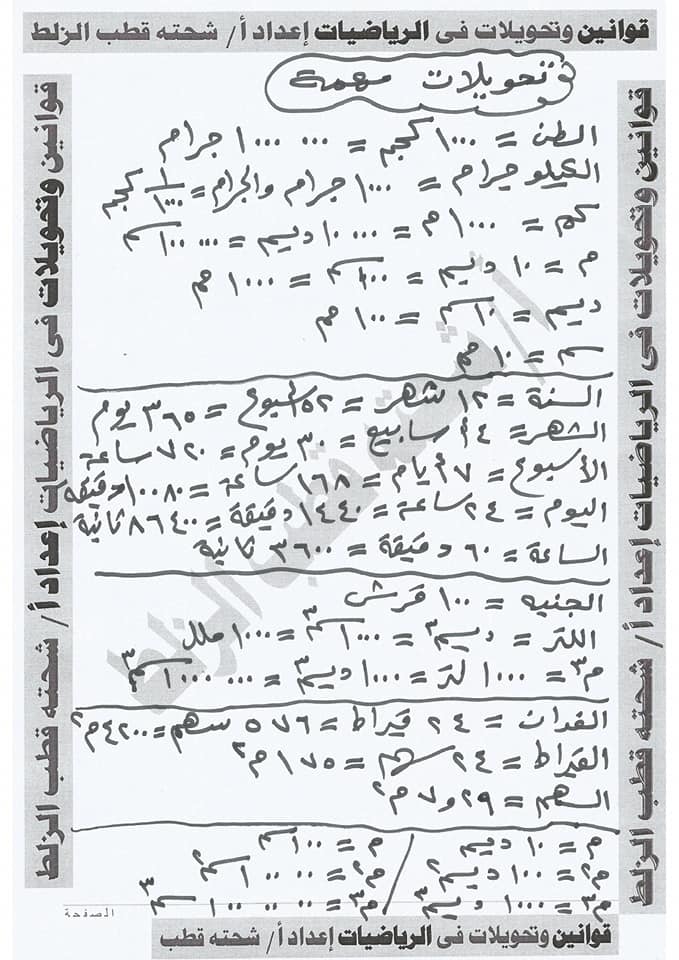 قوانين وتحويلات فى الرياضيات إعداد أ/ شحته قطب الزلط
تحويلات مهمة
الطن = ١٠٠٠ كجم = ١٠٠٠٠٠٠ جرام
الكيلو جرام = ١٠٠٠ جرام والجرام = ١/١٠٠٠ كجم
كم = ١٠٠٠ م = ١٠٠٠٠ ديسم = ١٠٠٠٠٠ سم
م = ١٠ ديسم = ١٠٠ سم = ١٠٠٠ مم
ديسم = ١٠ سم = ١٠٠ مم
سم = ١٠ مم
السنة = ١٢ شهر = ٥٢ اسبوع = ٣٦٥ يوم
الشهر = ٤ أسابيع = ٣٠ يوم = ٧٢٠ ساعة
الأسبوع = ٧ أيام = ١٦٨ ساعة = ١٠٠٨٠ دقيقة
اليوم = ٢٤ ساعة = ١٤٤٠ دقيقة = ٨٦٤٠٠ ثانية
الساعة = ٦٠ دقيقة = ٣٦٠٠ ثانية
الجنيه = ١٠٠ قرش
اللتر = ديسم٣ = ١٠٠٠ سم٣ = ١٠٠٠ ملل
م٣ = ١٠٠٠ لتر = ١٠٠٠ ديسم٣ = ١٠٠٠٠٠٠ سم٣
الفدان = ٢٤ قيراط = ٥٧٦ سهم = ٤٢٠٠ م٢
القيراط = ٢٤ سهم = ١٧٥ م٢
السهم = ٧,٢٩ م٢
م = ١٠ ديسم / م = ١٠٠ سم
م٢ = ١٠٠ ديسم٢ / م٢ = ١٠٠٠٠ سم٢
م٣ = ١٠٠٠ ديسم٣ / م٣ = ١٠٠٠٠٠٠ سم٣
الصفحة
قوانين وتحويلات فى الرياضيات إعداد أ/ شحته قطب
قوانين وتحويلات فى الرياضيات إعداد أ/ شحته قطب الزلط
قوانين وتحويلات فى الرياضيات إعداد أ/ شحته قطب الزلط
أ/ شحته قطب الزلط